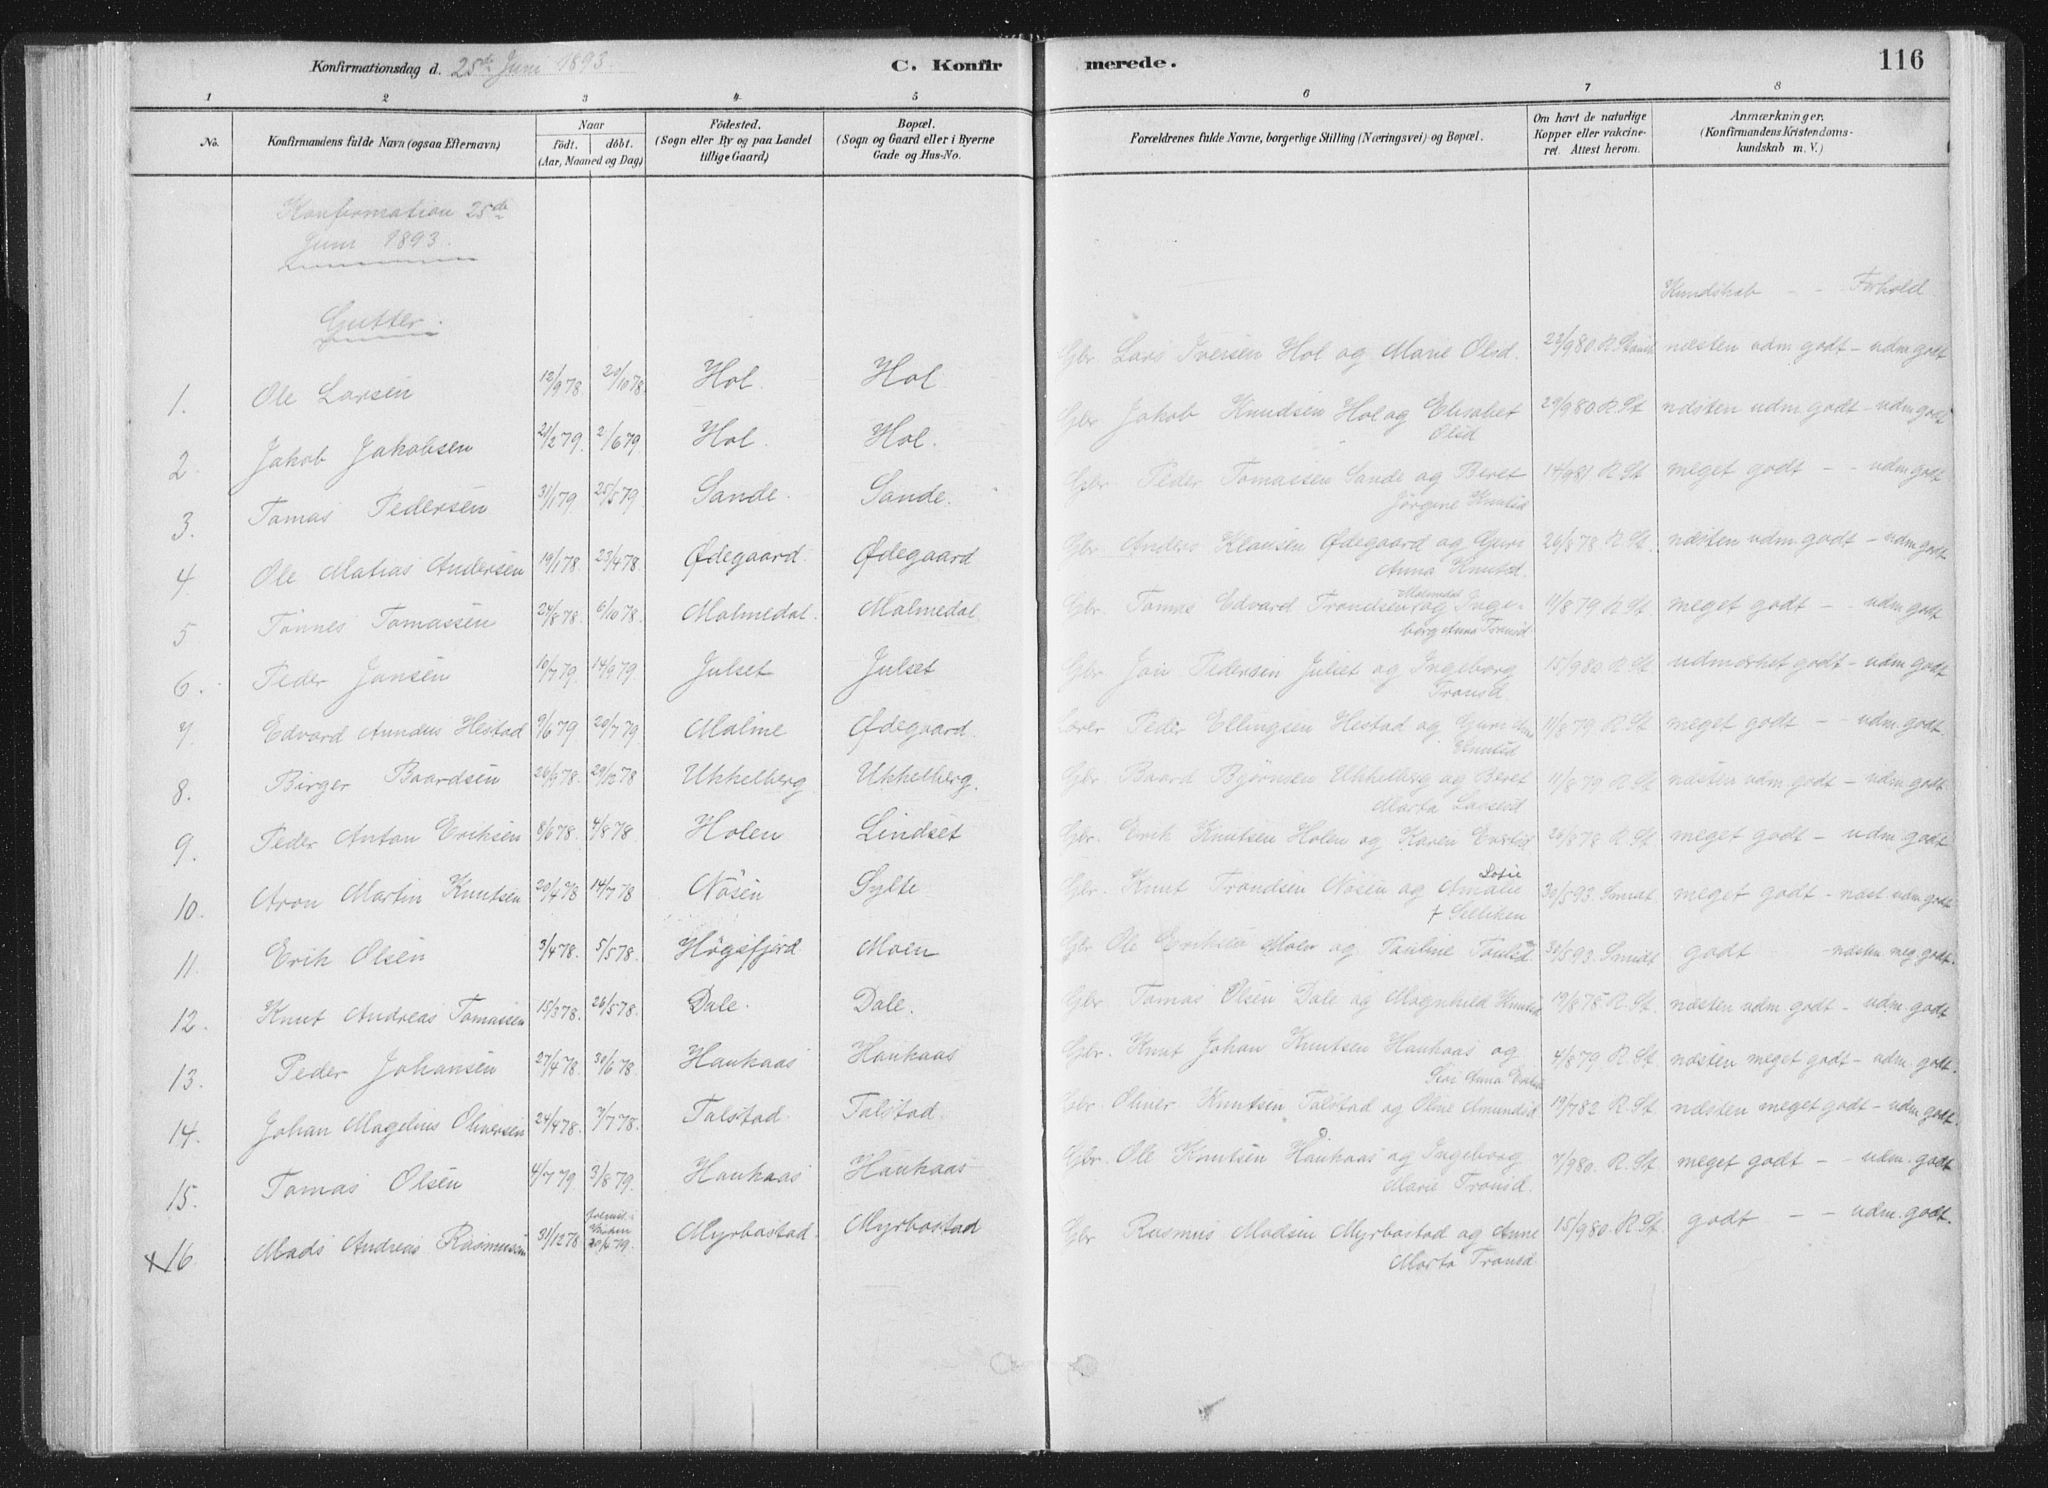 Konfirmationsdag d. 25de Juni 1893.
C. Konfirmerede.
116
1 2 3 4 5 6 7 8
No.
Konfirmandens fulde Navn (ogsaa Efternavn)
Naar
født. døbt.
(Aar, Maaned og Dag)
Fødested.
(Sogn eller By og paa Landet
tillige Gaard)
Bopæl.
(Sogn og Gaard eller i Byerne
Gade og Hus-No.
Forældrenes fulde Navne, borgerlige Stilling (Næringsvei) og Bopæl.
Om havt de naturlige
Kopper eller vakcine-
ret. Attest herom.
Anmærkninger.
(Konfirmandens Kristendoms-
kundskab m. V.)
Konfirmation 25de
Juni 1893.
Gutter.
Kundskab - - Forhold
1. Ole Larsen 12/9 78 20/10 78. Hol. Hol. Gbr. Lars Iversen Hol og Marie Olsd. 29/9 80. R. næsten udm. godt - udm. godt
2. Jakob Jakobsen 21/2 79. 2/6 79 Hol. Hol. Gbr. Jakob Knudsen Hol og Elisabet 29/9 80 R. St. næsten udm. godt - udm. godt
Olsd
3. Tomas Pedersen 31/1 79. 25/5 79 Sande. Sande. Gbr. Peder Tomassen Sande og Beret 14/9 81 R. St meget godt - - udm. godt
Jørgine Knutsd
4 Ole Matias Andersen 19/1 78. 23/4 78. Ødegaard. Ødegaard Gbr. Anders Klausen Ødegaard og Guri 26/8 78 R. St. næsten udm. godt - udm. godt
Anna Knutsd.
5 Tønnes Tomassen 24/8 78. 6/10 78. Malmedal. Malmedal Gbr. Tomas Edvard Trondsen Malmedal og Inge- 11/8 79 R. St. meget godt - - udm. godt
borg Anna Tronsd.
6. Peder Jansen 10/7 79. 14/9 79. Julset Julset Gbr. Jan Pedersen Julset og Ingeborg 15/9 80 R. St. udmærket godt - udm. godt
Tronsd
7. Edvard Amndus Hestad 9/6 79. 20/7 79 Malme Ødegaard. Lærer Peder Ellingsen Hestad og Guri Anna 11/8 79 R. St meget godt - - udm. godt.
Knutsd
8. Birger Baardsen 26/9 78. 29/12 78 Ukkelberg Ukkelberg. Gbr. Baard Bjørnsen Ukkelberg og Beret 11/8 79 R. St næsten udm. godt - udm. godt.
Marta Lassesd
9. Peder Anton Eriksen 8/6 78. 4/8 78. Holen Lindset Gbr. Erik Knutsen Holen og Karen 26/8 78 R. St. meget godt - udm. godt
10. Aron Martin Knutsen 20/4 78 14/7 78 Nøsen Sylte Gbr. Knut Trondsen Nøsen og Amalie Sofie 30/5 93. meget godt - næst. udm. godt
+ Selliken
11. Erik Olsen 3/4 78. 5/5 78. Høgsfjord Moen Gbr. Ole Eriksen Moen og Pauline 30/5 93. Smidt godt - næsten meg. godt.
12. Knut Andreas Tomassen 15/3 78. 26/5 78. Dale. Dale. Gbr. Tomas Olsen Dale og Magnhild Knutsd 19/8 78 R. St. næsten udm. godt - udm. godt
13. Peder Johansen 27/4 78. 30/6 78. Haukaas Haukaas Gbr. Knut Johan Knutsen Haukaas og 4/8 79 R. St næsten meget godt - udm. godt.
Siri Anna
14. Johan Magelius Oliversen 24/4 78. 7/7 78. Talstad. Talstad. Gbr. Oliver Knutsen Talstad og Oline Amundsd 19/7 82 R. St næsten meget godt - udm. godt.
15. Tomas Olsen 4/7 79. 3/8 79. Haukaas Haukaas Gbr. Ole Knutsen Haukaas og Ingeborg 7/9 80. R. St meget godt - - udm. godt
Marie Tronsd.
x 16. Mads Andreas Rasmussen 31/12 78. 29/6 79. Myrbostad. Myrbostad Gbr Rasmus Madsen Myrbostad og Anne 15/9 80. R. St. godt - - udm. godt.
Marta Tronsd.